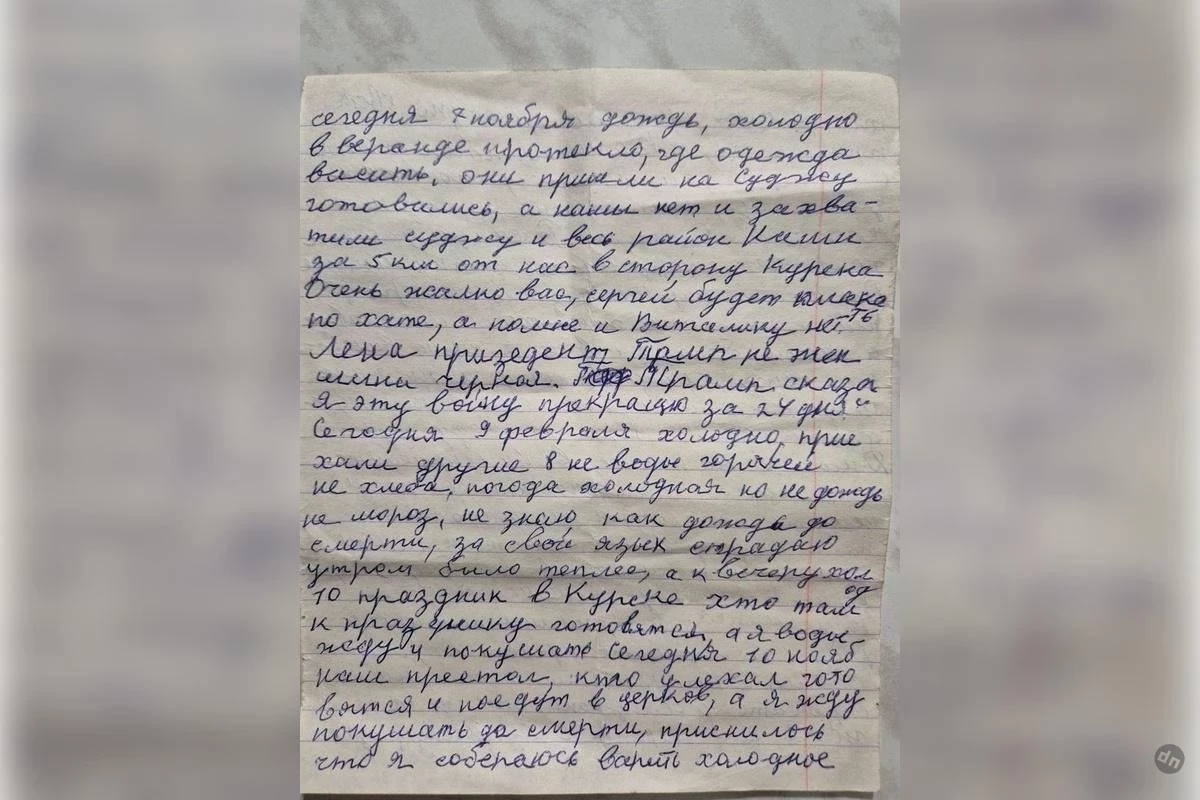 сегедня 7 ноября дождь, холодно
в веранде протекло, где одежда
васить, они пришли на Суджу
готовились, а нашы нет и захва-
тили суджу и весь район Наши
за 5 км от нас в сторону Курска
Очень жално вас, сергей будет плака
ть
по хате, а помне и Виталику нет.
Лена призедент Трамп не жен
щина черная. Трамп сказа
Я эту войну прекращю за 24 дня"
Сегодня 9 февраля холодно, прие
хали другие 8 не воды горячей
не хлеба, погода холодная но не дождь
не мороз, не знаю как дожда до
смерти, за свой язык страдаю
утром было теплее, а к вечеру хол
од
10 праздник в Курске хто там
к празднику готовятся, а я воды
жду и покушать Сегедня 10 нояб
наш престол, кто уехал гото
вятся и поедут в церков, а я жду
покушать до смерти, приснилось
что я собераюсь варить холодное
dn